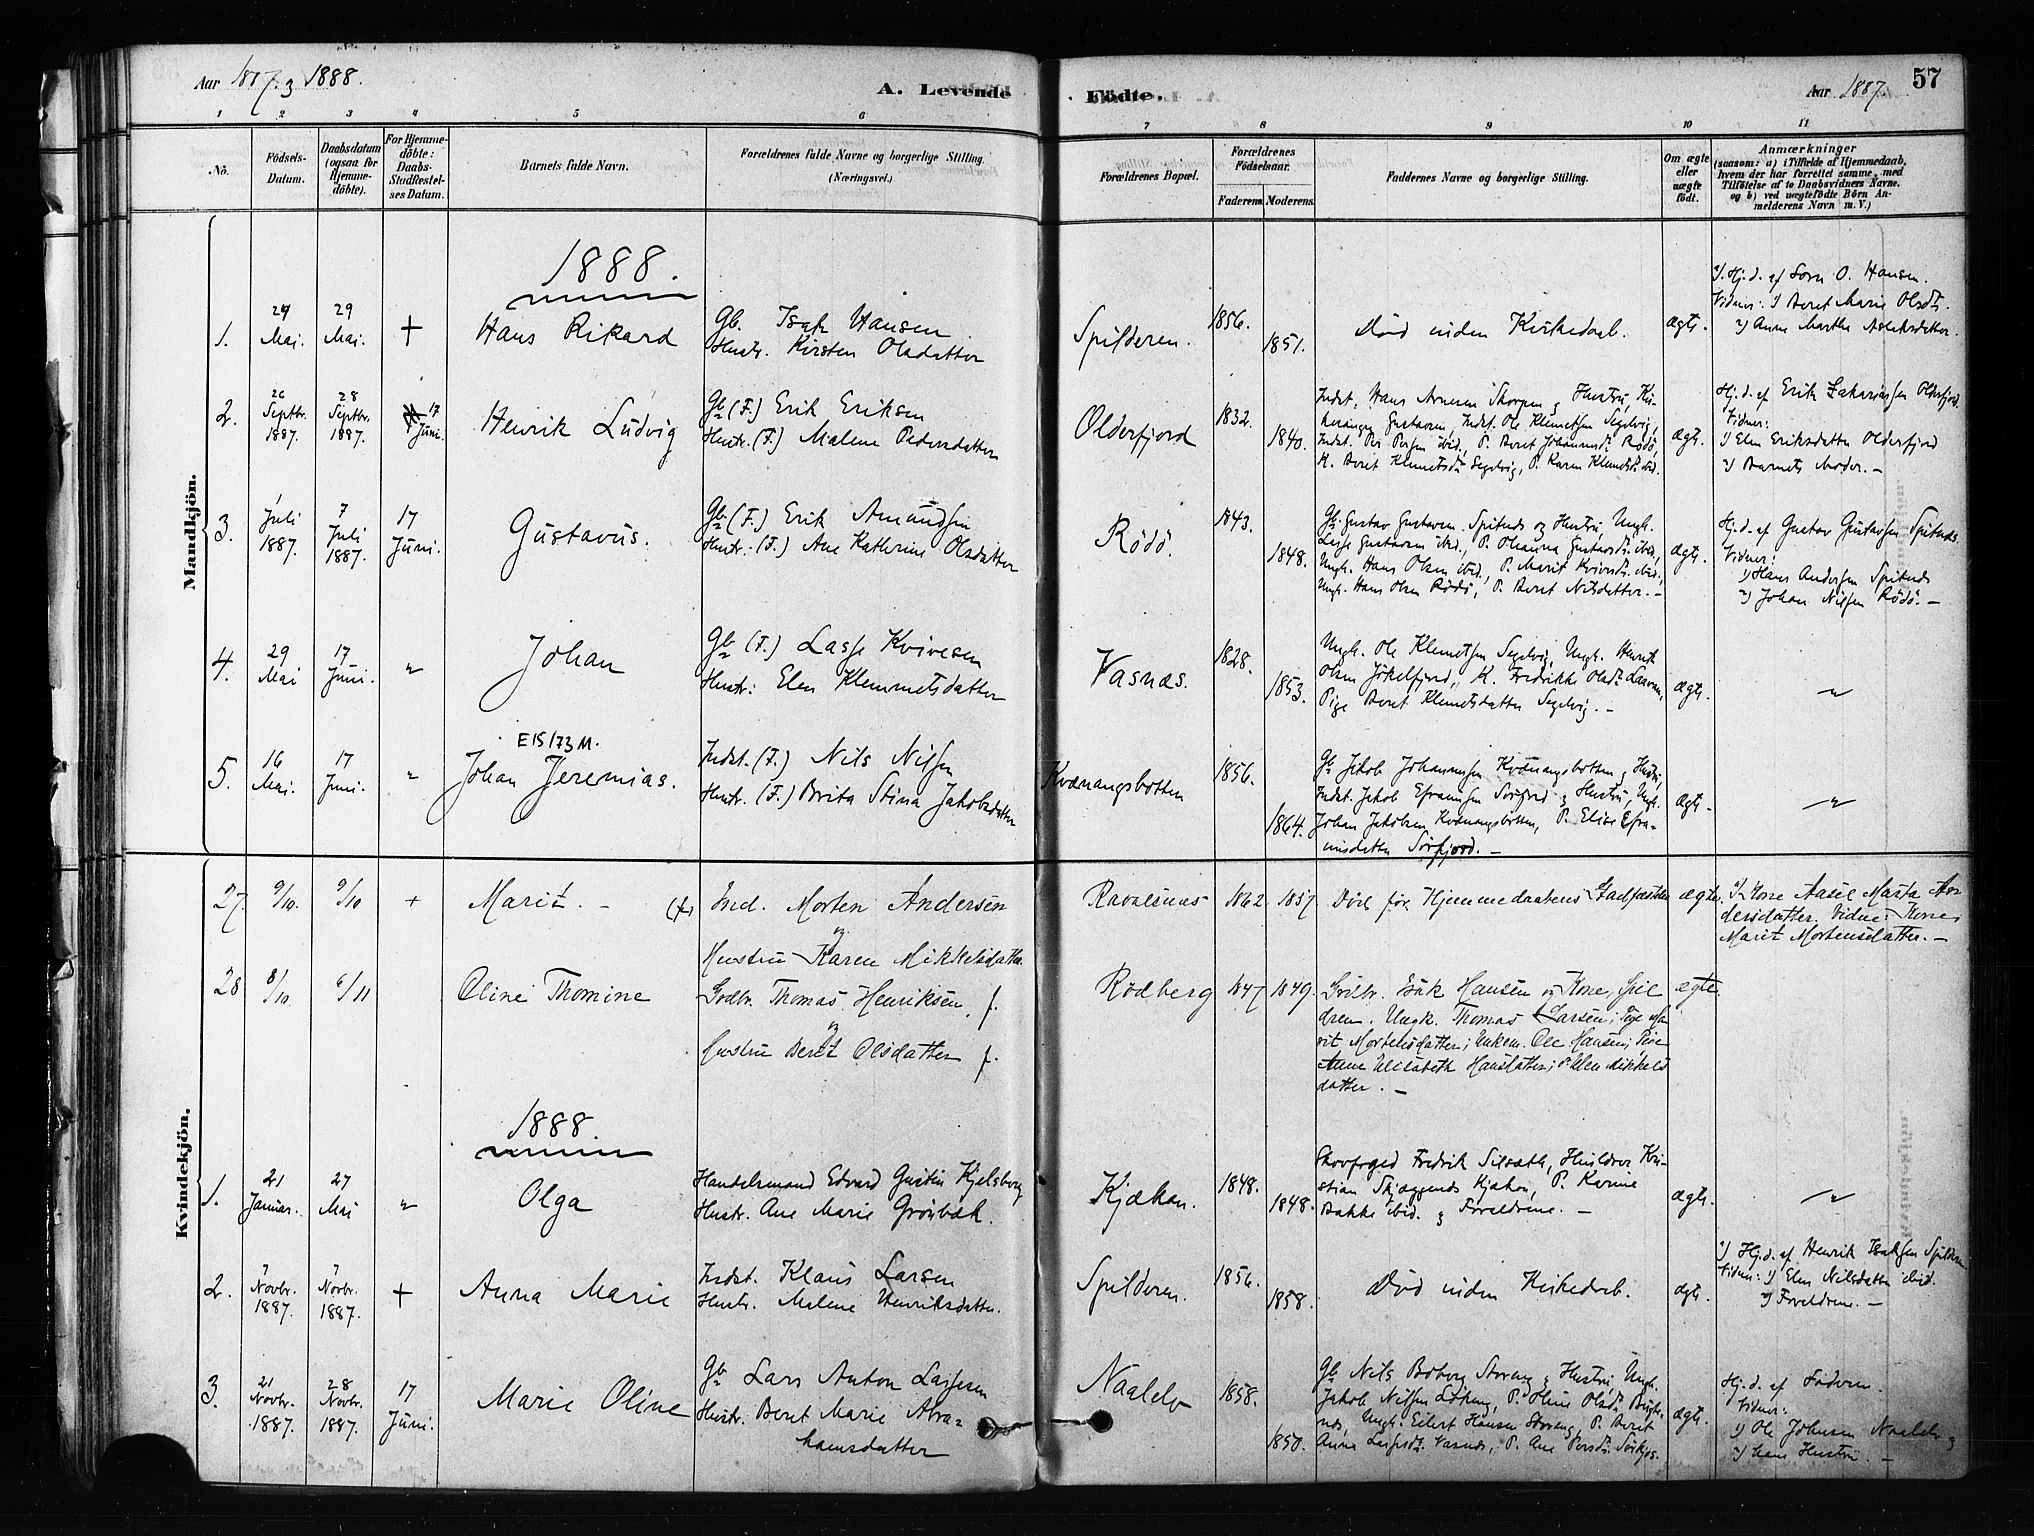 Aar 1887 & 1888.
A. Levende
Födte.
Aar 1887.
57
1 2 3 4 5 6 7 8 9 10 11
No.
Födsels-Datum.
Daabsdatum (ogsaa for Hjemme-döbte).
For Hjemme-döbte: Daabs-Stadfæstel-ses Datum.
Barnets fulde Navn.
Forældrenes fulde Navne og borgerlige Stilling.
(Næringsvei.)
Forældrenes Bopæl.
Forældrenes Födselsaar.
Faderens. Moderens.
Faddernes Navne og borgerlige Stilling.
Om ægte eller uægte födt.
Anmærkninger
(saasom: a) i Tilfælde af Hjemmedaab,
hvem der har forrettet samme, med
Tilföielse af to Daabsvidners Navne.
og b) ved uægtefödte Börn An-
melderens Navn m. V.)
Mandkjön.
1888.
1. 24 Mai. 29 Mai. + Hans Rikard
Gb. Isak Hansen
Hustr. Kirsten Olsdatter
Spilderen. 1856. 1851.
Död uden Kirkedaab.
ægte.
Hj.d. af Sørn O. Hansen.
Vidner: 1) Beret Marie Olsdt.
2) Anne Marthe
2. 26 Septbr. 1887. 28 Septbr. 1887. 17 Juni. Henrik Ludvig
Gb (F.) Erik Eriksen
Hustr. (F.) Malene Pedersdatter
Olderfjord 1832. 1840.
Indst. Hans Arnesen Skorpen & Hustru,
Gustavsen, Indst. Ole Klemetsen Segelvig,
Indst. Per Persen ibid., P. Beret Johannesdt. Rödö,
K. Beret Klemetsdt. Segelvig, P. Karen Klemetsdt. ibid.
ægte.
Hj.d. af Erik Zakariassen Olderfjord.
Vidner:
1) Elen Eriksdatter Olderfjord
2) Barnets Moder. -
3. 1 Juli 1887. 7 Juli 1887. 17 Juni. Gustavus.
Gb. (F.) Erik Amundsen
Hustr. (F.) Ane Katherine Olsdatter
Rödö. 1843. 1848.
Gb. Gustav Gustavsen Spitnds og Hustru, Ungk.
Lasse Gustavsen ibid., P. Johanna Gustavsdt. ibid.,
Ungk. Hans Olsen ibid., P. Marit Kvivesdt. ibid.,
Ungk. Hans Olsen Rödö, P. Beret Nilsdatter. -
ægte.
Hj.d. af Gustav Gustavsen Spitnds.
Vidner:
1) Hans Andersen Spitnds
2) Johan Nilsen Rödö. -
4. 29 Mai 17 Juni. " Johan
Gb (F.) Lasse Kvivesen
Hustr: Elen Klemmetsdatter
Vasnæs. 1828. 1853.
Ungk. Ole Klemetsen Segelvig, Ungk. Henrik
Olsen Jökelfjord, K. Fredrikke Olsdt.
Pige Beret Klemetsdatter Segelvig. -
ægte.
"
5. 16 Mai. 17 Juni. "
E 15/73 M.
Johan Jeremias.
Indst. (F.) Nils Nilsen
Hustr. (F.) Brita Stina Jakobsdatter
Kvænangsbotten 1856. 1864.
Gb Jakob Johannesen Kvænangsbotten & Hustru,
Indst. Jakob Efraimsen Sørfjord & Hustru, Ungk.
Johan Jakobsen Kvænangsbotten, P. Elise Efra-
imsdatter Sörfjord. -
ægte.
"
Kvindekjön.
27. 9/10. 9/10 + Marit. -
(f.) Ind. Morten Andersen
og
Hustru Karen Mikkelsdatter
1862 1857
Död før Hjemmedaabens Stadfæstelse
ægte.
1) Kone Aasel Marta An-
dersdatter. Vidne: Kone
Marit Mortensdatter. -
28 8/10. 6/11 Oline Thomine
Gbr. Thomas Henriksen, f.
og
Hustru Beret Olsdatter f.
Rødberg 1847 1849.
Gbr. Isak Hansen og Kone, Spil-
dren. Ungk. Thomas Larsen; Pige Ma-
rit Mortensdatter; Unkm. Ole Hansen; Pige
Anne Elisabeth Hansdatter; P. Elen Mikkels
datter. -
ægte.
1888.
1. 21 Januar. 27 Mai " Olga
Handelsmand Edvard Gustin Kjelsberg,
Hustr. Ane Marie Grönbæk.
Kjækan. 1848. 1848.
Skovfoged Fredrik Silsæth, Husldrer Kri-
stian Skjæggends Kjækan, P. Karine
Bakke ibid. & Forældrene. -
ægte.
"
2. 7 Novbr. 1887. 7 Novbr. 1887. + Anna Marie
Indst. Klaus Larsen
Hustr. Malene Henriksdatter.
Spilderen. 1856. 1858.
Död uden Kirkedaab.
ægte.
Hj.d. af Henrik Isaksen Spilderen.
Vidner: 1) Elen Nilsdatter ibid.
2) Forældrene. -
3. 21 Novbr. 1887. 28 Novbr. 1887. 17 Juni. Marie Oline
Gb Lars Anton Lassesen
Hustr. Beret Marie Abra-
hamsdatter
Naalelv 1858. 1850.
Gb Nils Boberg Storeng & Hustru, Ungk.
Jakob Nilsen P. Oline Olsdt.
Ungk. Eilert Hansen Storeng, P. Berit
Anna Lassesdt. Vasnæs, P. Ane Persdt. Sörfjo.
ægte.
Hj.d. af Faderen.
Vidner:
1) Ole Johnsen Naalelv &
2) hans Hustru. -